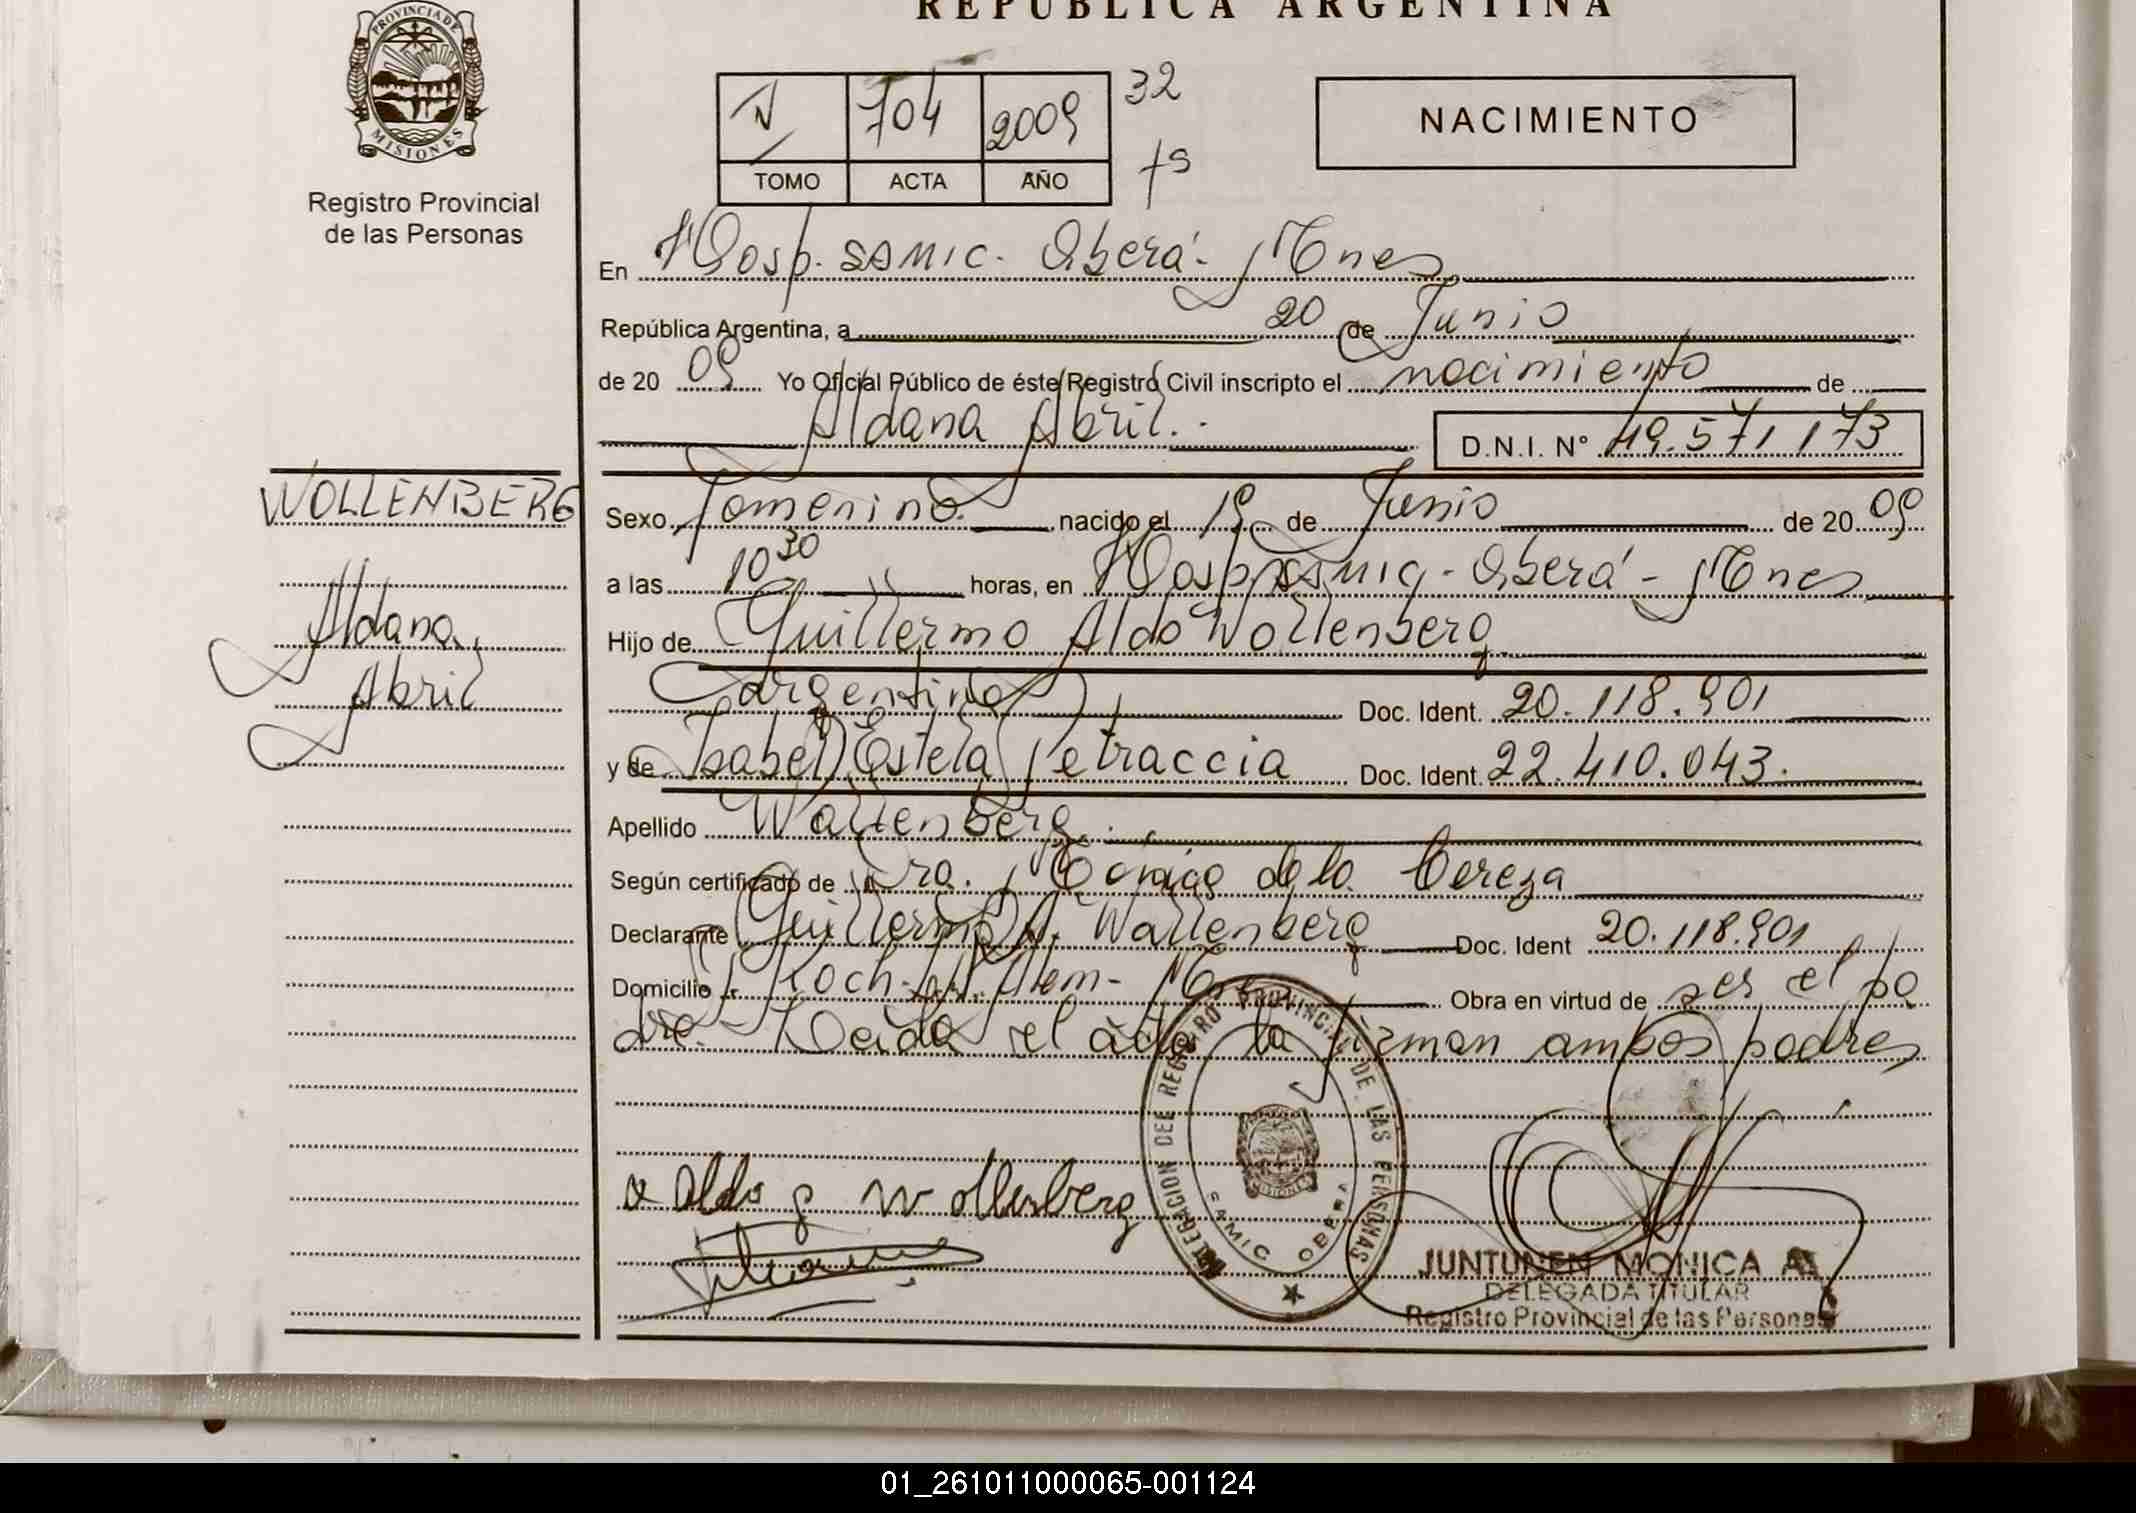 REPUBLICA ARGENTINA
PROVINCIA DE
MISIONES
Registro Provincial
de las Personas
704 2009 32
TOMO ACTA AÑO
NACIMIENTO
En Hosp. SAMIC. Oberá - Mnes
República Argentina, a 20 de Junio
de 20 09 Yo Oficial Público de éste Registro Civil inscripto el nacimiento de
Aldana Abril.
D.N.I. N° 49.571173
WOLLENBERG
Aldana
Abril
Sexo Femenino nacido el 19 de Junio de 20 09
a las 10 30 horas, en Hosp. SAMIC - Oberá - Mnes
Hijo de Guillermo Aldo Wollenberg
argentino Doc. Ident. 20.118.901
y de Isabel Estela Petraccia Doc. Ident. 22.410.043.
Apellido Wallenberg
Según certificado de Dra. de la Cereza
Declarante Guillermo A. Wallenberg Doc. Ident 20.118.901
Domicilio Alem - Obra en virtud de ser el pa
dre. Leida el acta la firman ambos padres
x Aldo G Wollenberg
DELEGACION DEL REGISTRO PROVINCIAL DE LAS PERSONAS
SAMIC OBERA
MISIONES
JUNTUNEN MONICA A.
DELEGADA TITULAR
Registro Provincial de las Personas
01_261011000065-001124